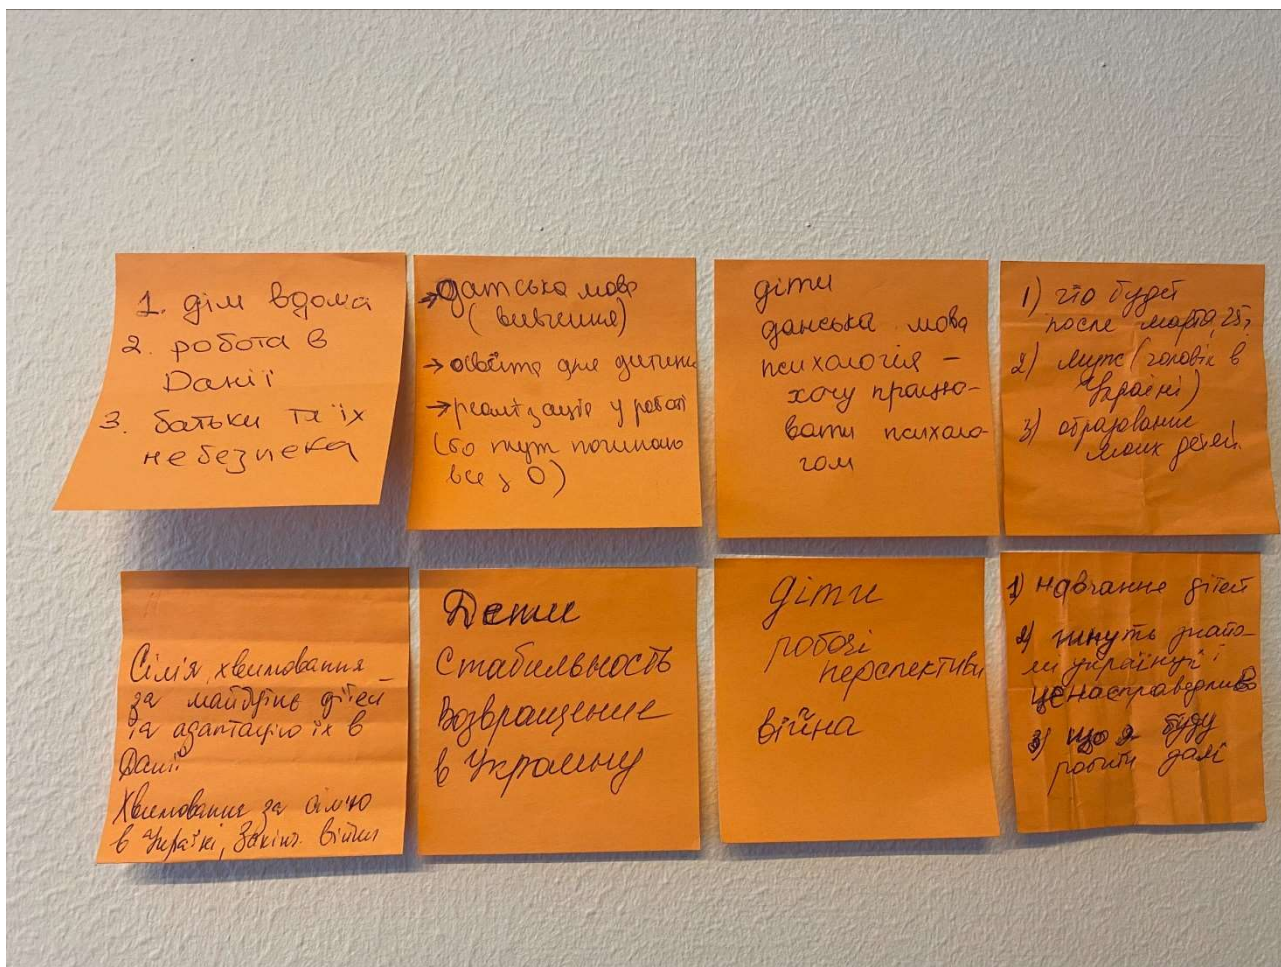 1. дім вдома
2. робота в
Данії
3. батьки та їх
небезпека
→ датська мова
(вивчення)
→ освіта для дитини
→ реалізація у роботі
(бо тут починаю
все з 0)
діти
данська мова
психологія –
хочу працю-
вати психоло-
гом
1) что будет
после марта 25?
2) муж (чоловік в
Україні)
3) образование
моих детей.
Сім'я, хвилювання
за майбутнє дітей
та адаптацію їх в
Данії
Хвилювання за сім'ю
в Україні, Закінч. війни
Дети
Стабильность
Возвращение
в Украину
діти
робочі
перспективи
війна
1) навчання дітей
2) гинуть
і
це несправедливо
3) що я буду
робити далі